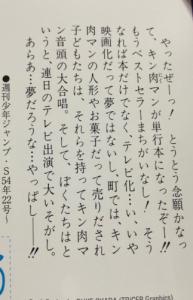 やったぜーっ! とうとう念願かなっ
て、キン肉マンが単行本になったぞー!!
もうベストセラーまちがいなし! そう
なれば本だけでなく、テレビ化…いいや
映画化だって夢ではないし、町では、キン
肉マンの人形やお菓子だって売りだされ
子どもたちは、それらを持ってキン肉マ
ン音頭の大合唱。そして、ぼくたちはと
いうと、連日のテレビ出演で大いそがし。
あらあ…夢だろうな…やっぱしー!!
●週刊少年ジャンプ・S54年22号〜